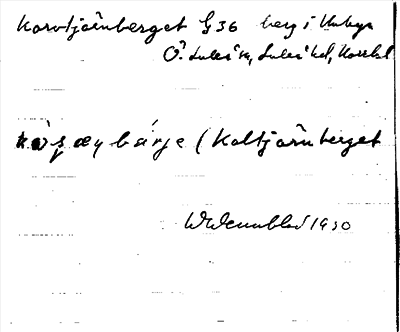 Korvtjärnberget G 36 berg i Unbyn
Ö. Luleå sn, Luleå hd, Norrbl
bárje (Koltjärnberget
W Wennblad 1930